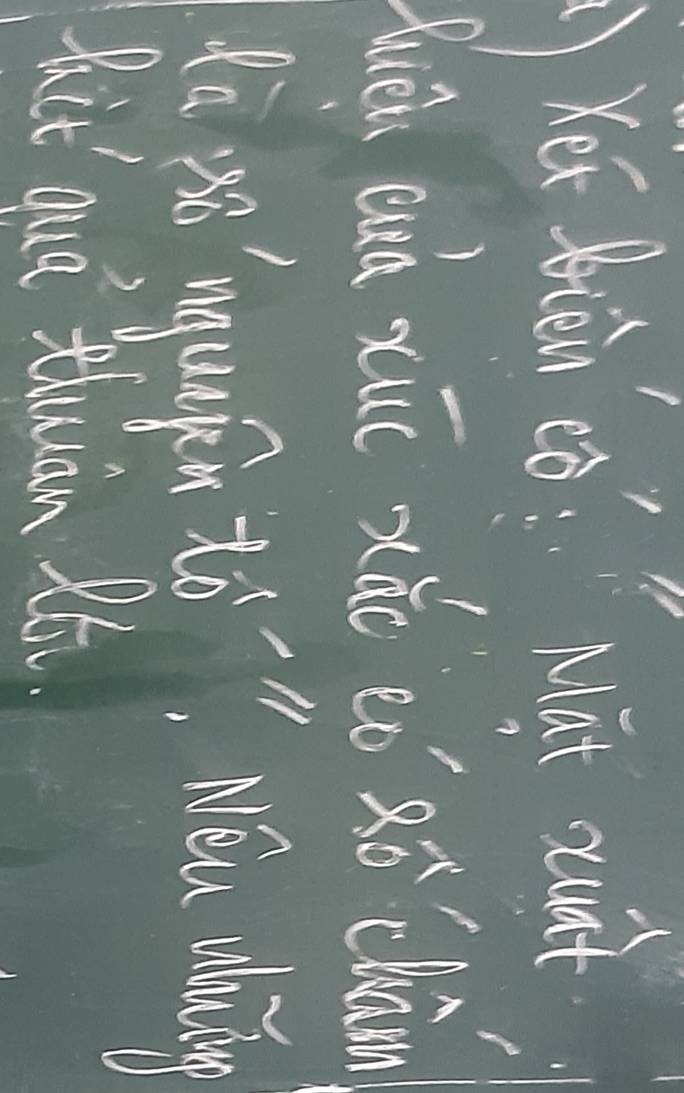 a) Xét biến cố: "Mặt xuất
hiện của xúc xắc có số chấm
là số nguyên tố". Nêu những
kết quả thuận lợi.